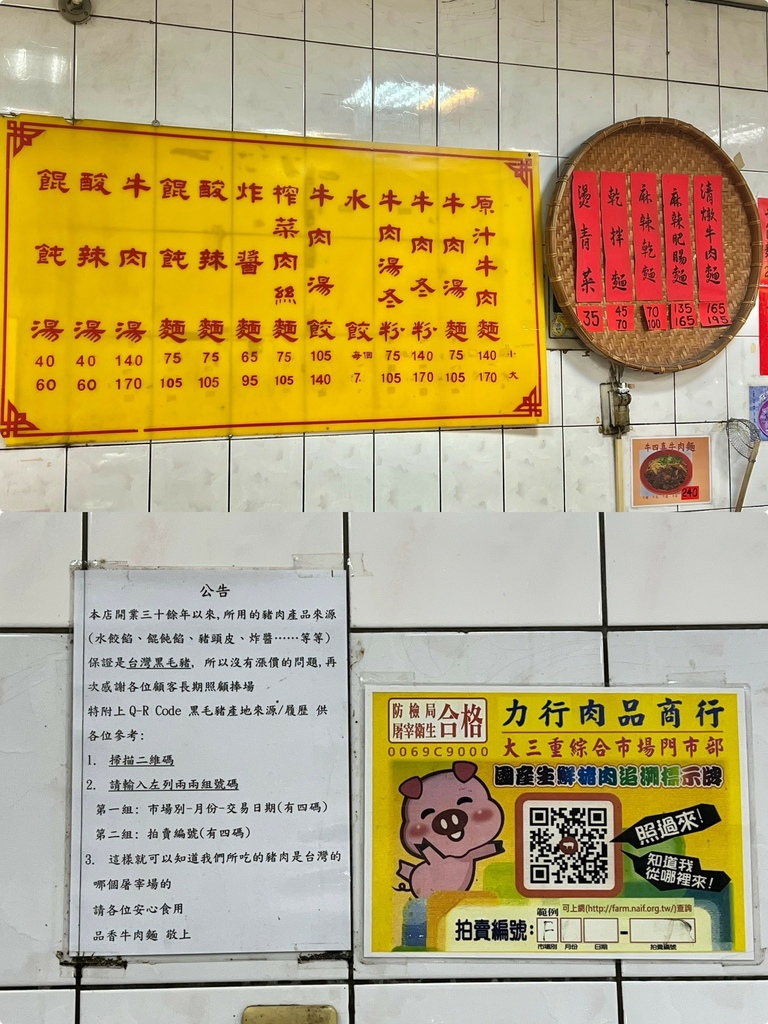 原汁牛肉麵 140 小 170 大
牛肉湯麵 75 105
牛肉冬粉 140 170
牛肉湯冬粉 75 105
水餃 每個 7.
牛肉湯餃 105 140
榨菜肉絲麵 75 105
炸醬麵 65 95
酸辣麵 75 105
餛飩麵 75 105
牛肉湯 140 170
酸辣湯 40 60
餛飩湯 40 60
清燉牛肉麵 165 195
麻辣肥腸麵 135 165
麻辣乾麵 70 100
乾拌麵 45 70
燙青菜 35
牛肉麵
240
公告
本店開業三十餘年以來,所用的豬肉產品來源
(水餃餡、餛飩餡、豬頭皮、炸醬⋯⋯等等)
保證是台灣黑毛豬, 所以沒有漲價的問題,再
次感謝各位顧客長期照顧捧場
特附上 Q-R Code 黑毛豬產地來源/履歷 供
各位參考:
1. 掃描二維碼
2. 請輸入左列兩兩組號碼
第一組: 市場別-月份-交易日期(有四碼)
第二組: 拍賣編號(有四碼)
3. 這樣就可以知道我們所吃的豬肉是台灣的
哪個屠宰場的
請各位安心食用
品香牛肉麵 敬上
防檢局
屠宰衛生
合格
0069C9000
力行肉品商行
大三重綜合市場門市部
國產生鮮豬肉追溯標示牌
照過來!
知道我
從哪裡來!
範例 可上網(http://farm.naif.org.tw/)查詢
拍賣編號: F -
市場別 月份 日期 拍賣編號